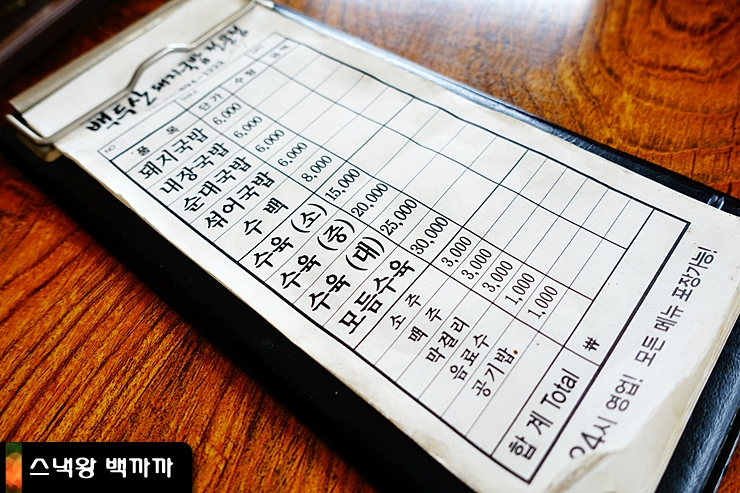 백두산 돼지국밥
NO 품목 단가 수량 금액
돼지국밥 6,000
내장국밥 6,000
순대국밥 6,000
섞어국밥 6,000
수백 8,000
수육 (소) 15,000
수육 (중) 20,000
수육 (대) 25,000
모듬수육 30,000
소주 3,000
백주 3,000
막걸리 3,000
음료수 1,000
공기밥 1,000
합계 Total ₩
24시 영업! 모든 메뉴 포장가능!
스낵왕 백까까